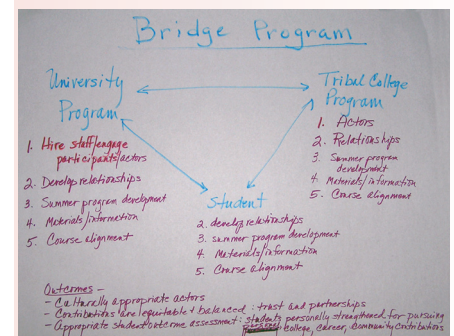 Bridge Program
University
Program
1. Hire staff/engage
participants/actors
2. Develop relationships
3. Summer program development
4. Materials/information
5. Course alignment
Tribal College
Program
1. Actors
2. Relationships
3. Summer program
development
4. Materials/information
5. Course alignment
Student
2. develop relationships
3. summer program development
4. Materials/information
5. Course alignment
Outcomes -
- Culturally appropriate actors
- Contributions are equitable & balanced : trust and partnerships
- Appropriate student outcome assessment : students personally strengthened for pursuing
college, career, community contributions